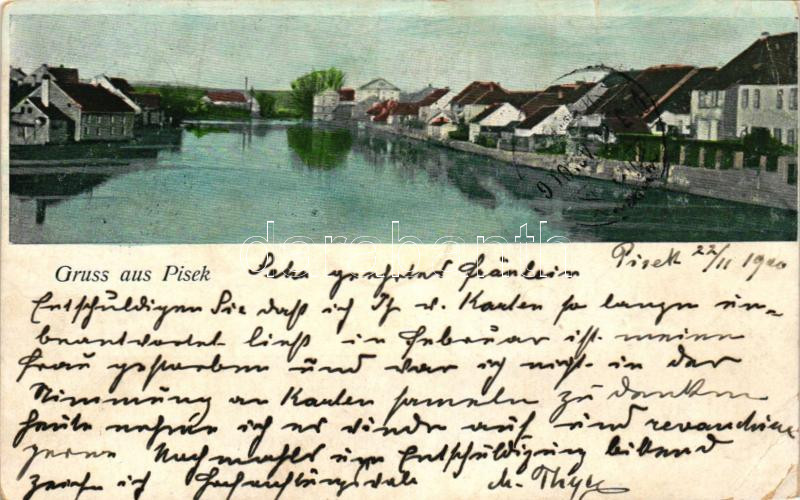 Gruss aus Pisek
Pisek 22/11 1900
Sehr geehrtes Fräulein
Entschüldigen Sie daß ich Ihr w. Karten so lange ün-
beantwortet ließ in Februar ist meine
Frau gestorben und war ich nicht in der
Stimmüng an Karten sameln zü denken
heüte nehme ich es wieder auf und revanchire
gerne Nochmahls üm Entschüldigüng bittend
zeichne ich Hochachtüngsvoll
darabanth.com